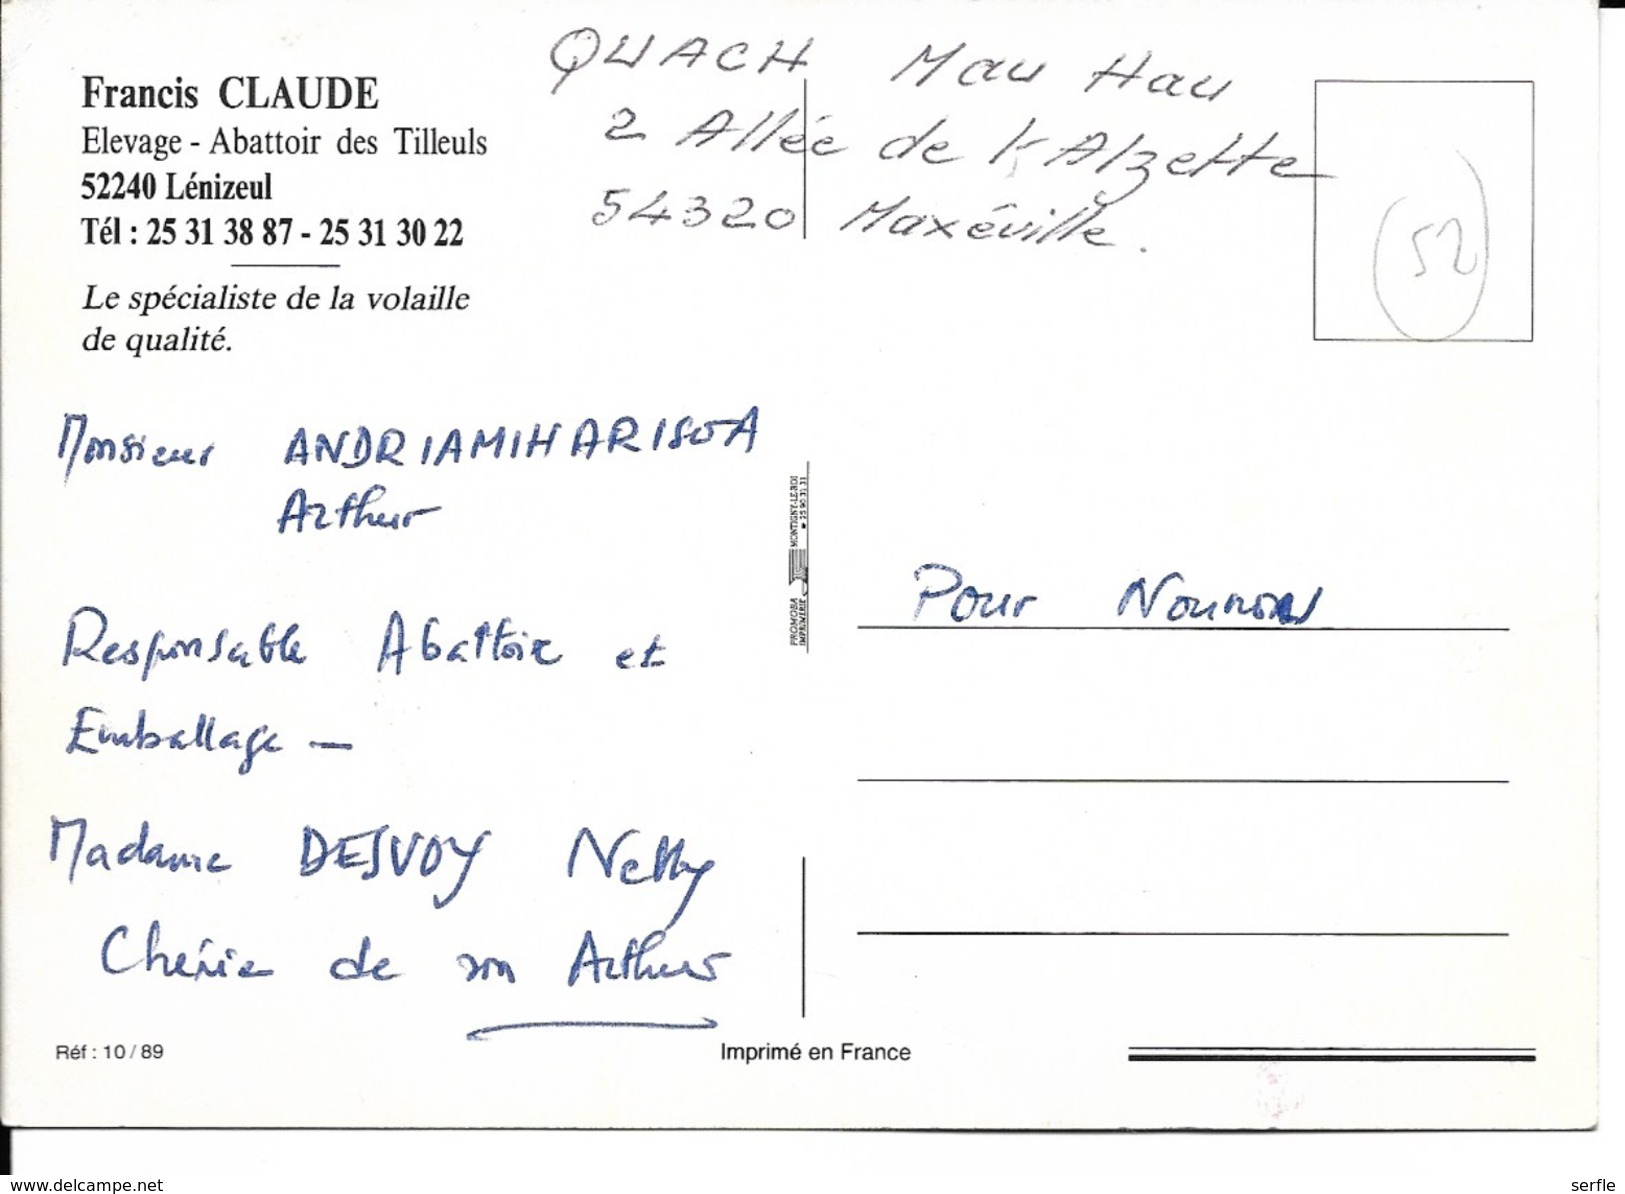 QUACH Mau Hau
2 Allée de l'Alzette
54320 Maxéville.
Francis CLAUDE
Elevage - Abattoir des Tilleuls
52240 Lénizeul
Tél : 25 31 38 87 - 25 31 30 22
Le spécialiste de la volaille
de qualité.
52
Monsieur ANDRIAMIHARISOA
Arthur
Responsable Abattoir et
Emballage -
Madame DESVOY Nelly
Chérie de son Arthur
PROMOBA
IMPRIMERIE
MONTIGNY-LE-ROI
25 90 31 31
Pour Nounou
Réf : 10 / 89
Imprimé en France
www.delcampe.net
serfle